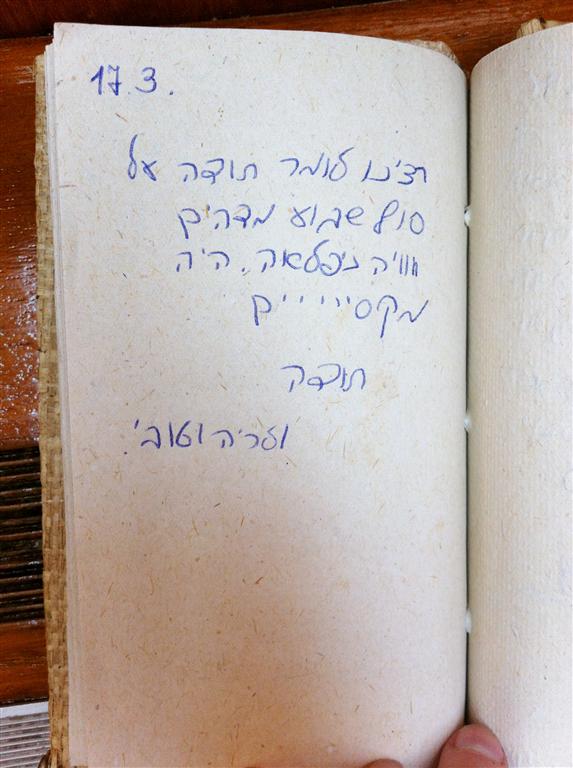 17.3.
רצינו לומר תודה על
סוף שבוע מדהים
חוויה ניפלאה. היה
מקסיייייים
תודה